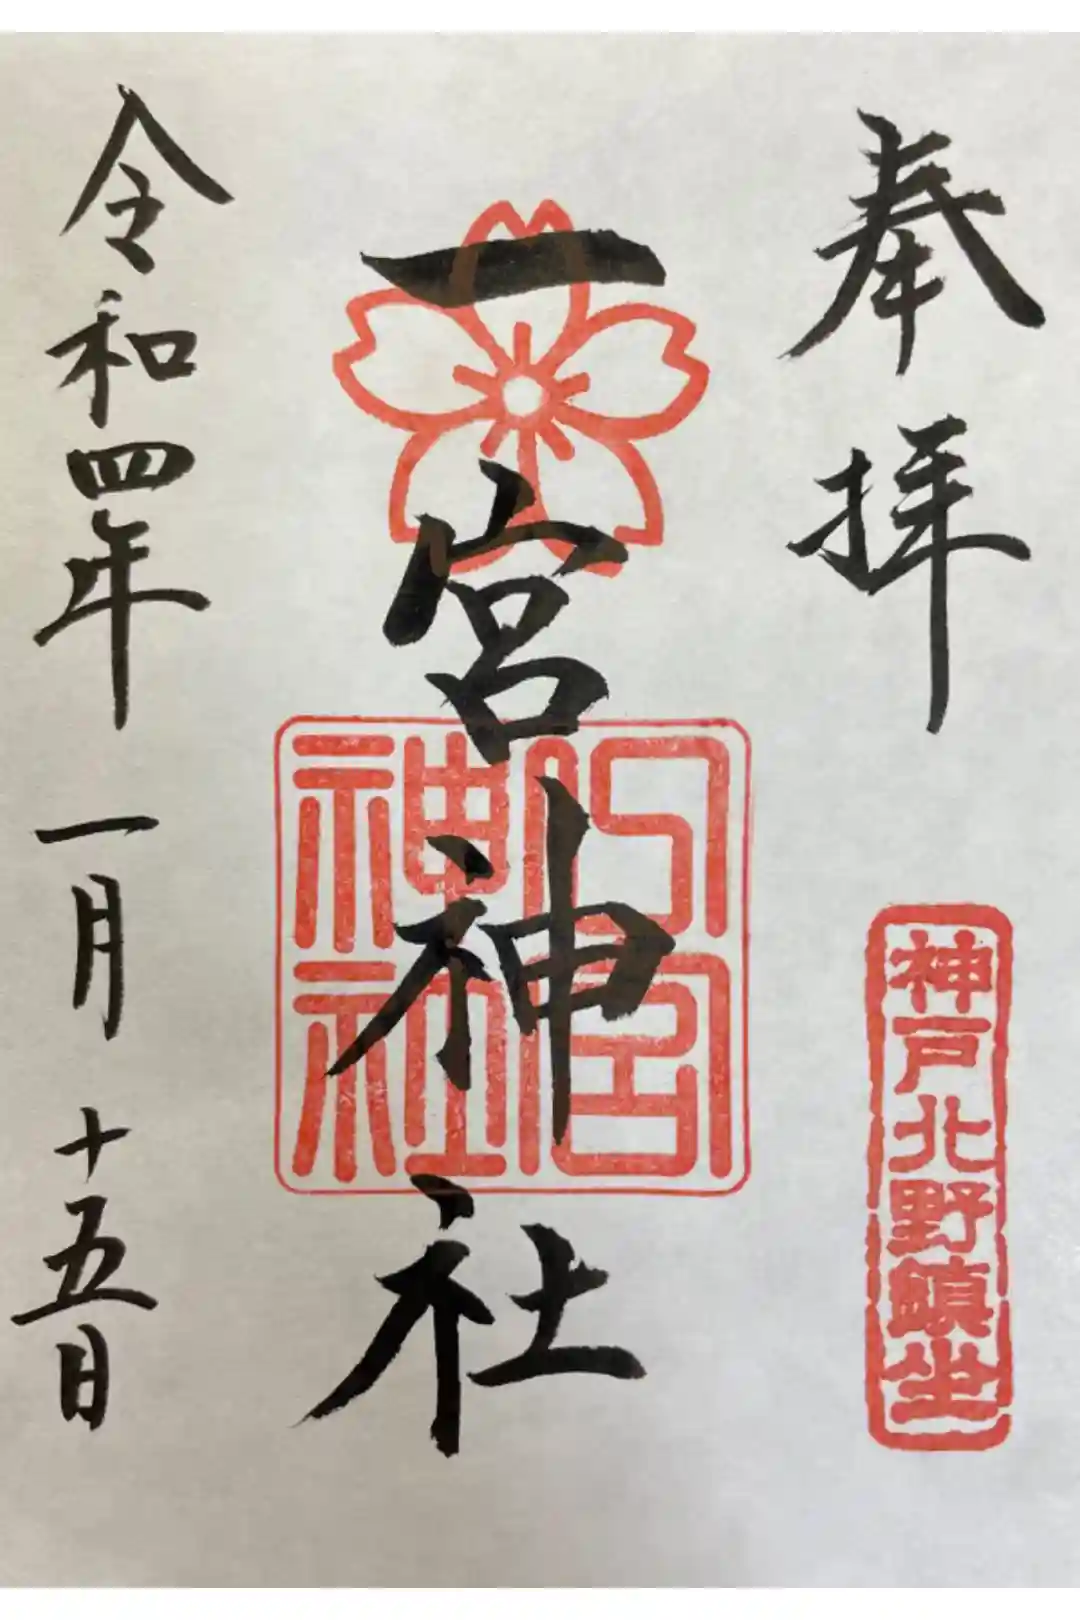 奉拝
神戸北野鎮坐
一宮神社
宮
神社
令和四年一月十五日